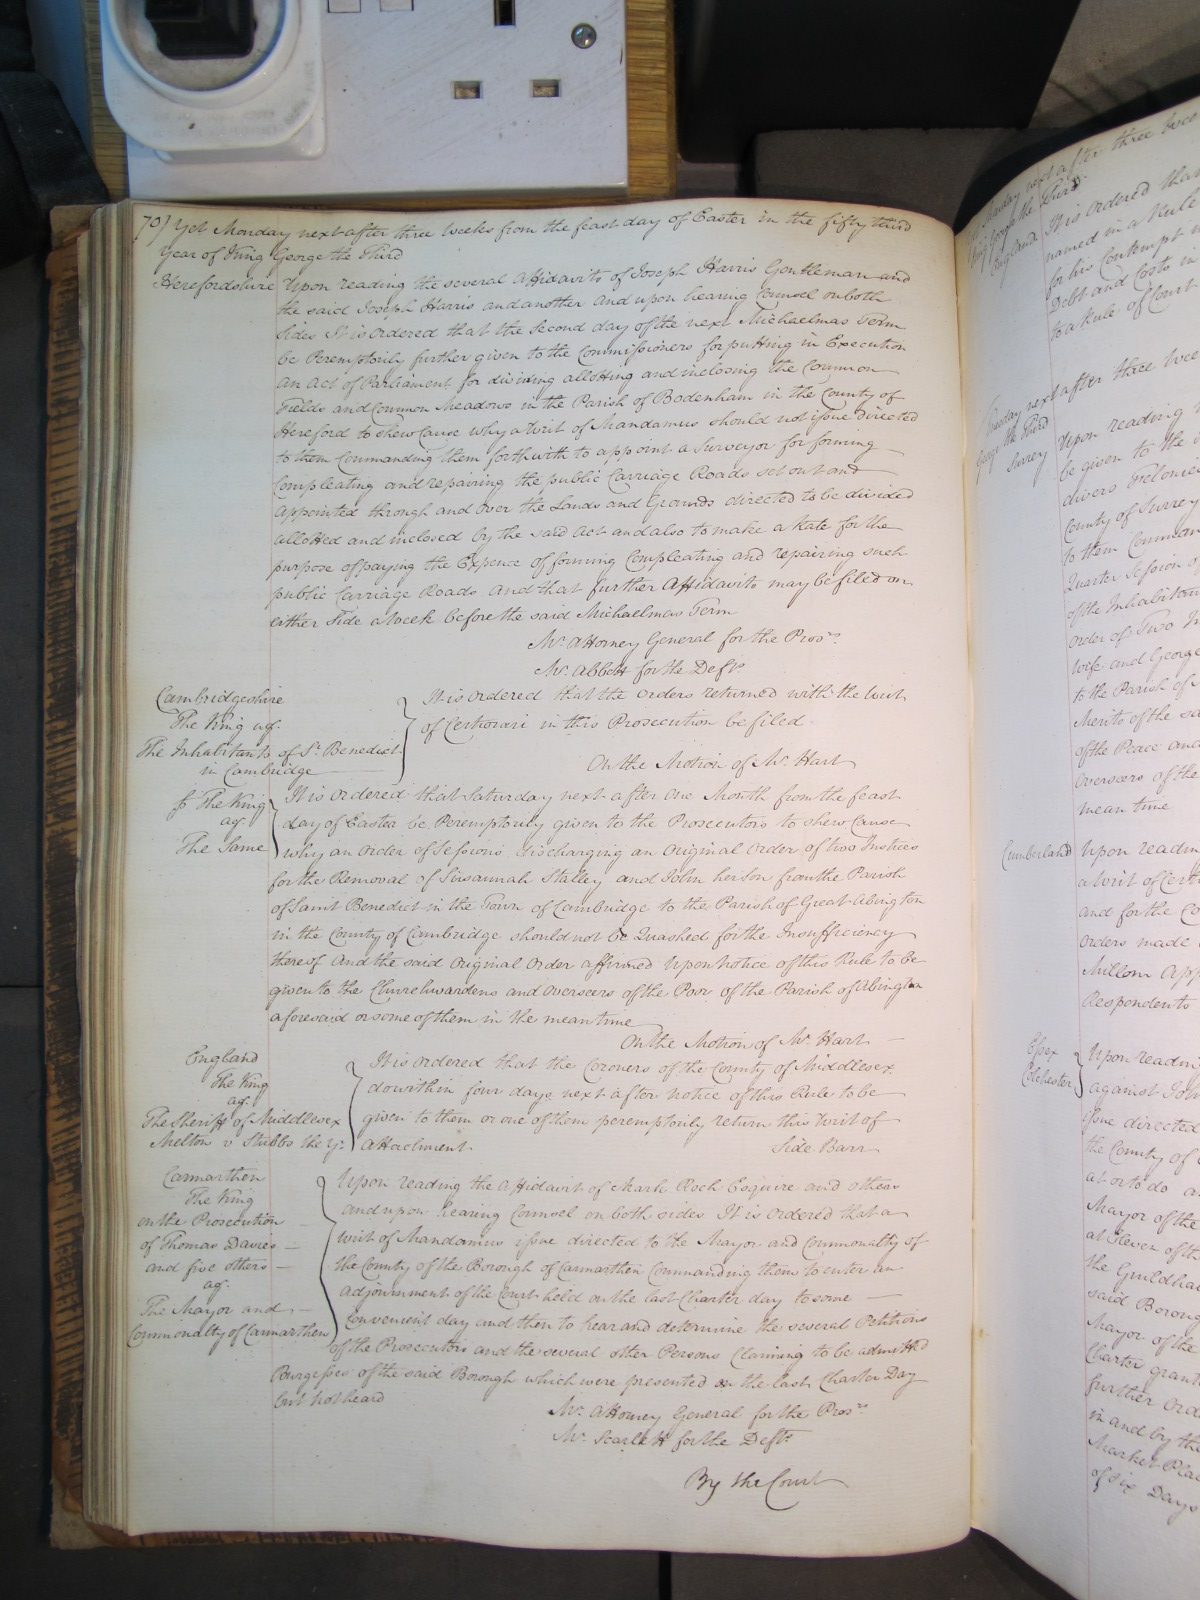 70) Yet Monday next after three Weeks from the feast day of Easter in the fifty third
Year of King George the Third
Herefordshire Upon reading the several Affidavits of Joseph Harris Gentleman and
the said Joseph Harris and another And upon hearing Counsel on both
sides It is Ordered that the Second day of the next Michaelmas Term
be Peremptorily further given to the Commissioners for putting in Execution
an Act of Parliament for dividing allotting and inclosing the Common
Fields and Common Meadows in the Parish of Bodenham in the County of
Hereford to shew Cause why a Writ of Mandamus should not issue directed
to them Commanding them forthwith to appoint a Surveyor for forming
Compleating and repairing the public Carriage Roads set out and
appointed through and over the Lands and Grounds directed to be divided
allotted and inclosed by the said Act and also to make a Rate for the
purpose of paying the Expence of forming Compleating and repairing such
public Carriage Roads And that further Affidavits may be filed on
either Side a Week before the said Michaelmas Term
Mr. Attorney General for the Prosrs.
Mr. Abbott for the Defts.
Cambridgeshire
The King agt.
The Inhabitants of St. Benedict
in Cambridge
It is Ordered that the Orders returned with the Writ
of Certiorari in this Prosecution be filed
On the Motion of Mr. Hart
The King
agt.
The Same
It is Ordered that Saturday next after One Month from the feast
day of Easter be Peremptorily given to the Prosecutors to shew Cause
why an Order of Sessions discharging an Original Order of two Justices
for the Removal of Susannah Stalley and John her Son from the Parish
of Saint Benedict in the Town of Cambridge to the Parish of Great Abington
in the County of Cambridge should not be Quashed for the Insufficiency
thereof And the said Original Order affirmed Upon notice of this Rule to be
given to the Churchwardens and Overseers of the Poor of the Parish of Abington
aforesaid or some of them in the mean time
On the Motion of Mr. Hart
England
The King
agt.
The Sheriff of Middlesex
Melton v Stubbs the yr.
It is Ordered that the Coroners of the County of Middlesex
do within four days next after notice of this Rule to be
given to them or one of them peremptorily return this Writ of
Attachment
Side Barr
Carmarthen
The King
on the Prosecution
of Thomas Davies
and five others
agt.
The Mayor and
Commonalty of Carmarthen
Upon reading the Affidavit of Mark Roch Esquire and others
and upon hearing Counsel on both sides It is Ordered that a
Writ of Mandamus issue directed to the Mayor and Commonalty of
the County of the Borough of Carmarthen Commanding them to enter an
adjournment of the Court held on the last Charter day to some
Convenient day and then to hear and determine the several Petitions
of the Prosecutors and the several other Persons Claiming to be admitted
Burgesses of the said Borough which were presented on the last Charter Day
but not heard
Mr. Attorney General for the Prosrs.
Mr. Scarlett for the Defts.
By the Court
Monday next after three Wee
King George the Third
England
It is Ordered that
named in a Rule
for his Contempt
Debt and Costs in
to a Rule of Court
Tuesday next after three Wee
George the Third
Surrey
Upon reading
be given to the
divers Felonies
County of Surrey
to them Comman
Quarter Session of
of the Inhabitan
Order of Two Ju
Wife and George
to the Parish of
Merits of the sa
of the Peace and
Overseers of the
mean time
Cumberland
Upon readin
a Writ of Cert
and for the Co
Orders made
Millom App
Respondents
Essex
Colchester
Upon readin
against John
issue directed
the County of
at or to do a
Mayor of the
at Eleven of th
the Guildhal
said Boroug
Mayor of the
Charter grant
further Orde
in and by the
Market Plac
of six Days